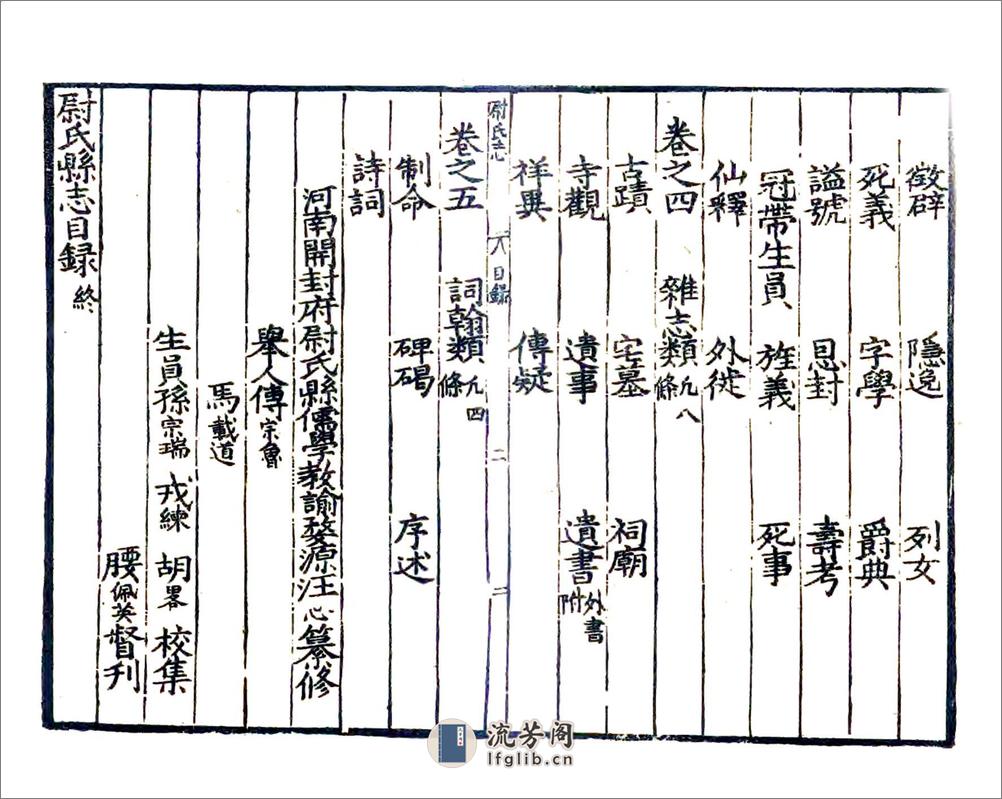 徵辟 隱逸 列女
死義 字學 爵典
謚號 恩封 壽考
冠帶生員 旌義 死事
仙釋 外徙
卷之四 雜志類凡八條
古蹟 宅墓 祠廟
寺觀 遺事 遺書外書附
祥異 傳疑
尉氏志 目録 二
卷之五 詞翰類凡四條
制命 碑碣 序述
詩詞
河南開封府尉氏縣儒學教諭婺源汪心纂修
舉人傅宗魯
馬載道
生員孫宗瑞 戎練 胡畧 校集
腰佩英督刋
尉氏縣志目録終
流芳阁
lfglib.cn